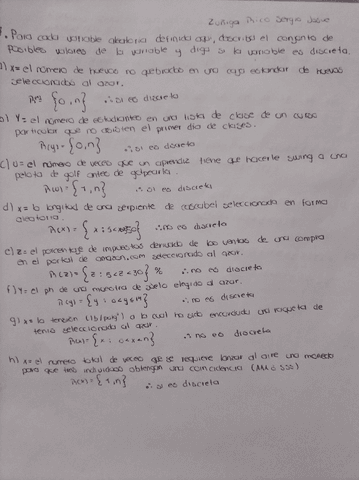 Zuñiga Rico Sergio Josue
1. Para cada variable aleatoria definida aqui, describa el conjunto de
posibles valores de la variable y diga si la variable es discreta.
a) x= el número de huevos no quebrados en una caja estandar de huevos
seleccionados al azar.
{0,n} ∴ si es discreta
b) Y= el número de estudiantes en una lista de clase de un curso
particular que no asisten el primer día de clases.
R(y)= {0,n} ∴ si es discreta
c) U= el número de veces que un aprendiz tiene que hacerle swing a una
pelota de golf antes de golpearla.
R(u)= {1,n} ∴ si es discreta
d) x= la longitud de una serpiente de cascabel seleccionada en forma
aleatoria.
R(x)= { } ∴ no es discreta
e) z= el porcentaje de impuestos derivado de las ventas de una compra
en el portal de amazon.com seleccionado al azar.
R(z)= {z: 5<z<30} % ∴ no es discreta
f) Y= el ph de una muestra de suelo elegido al azar.
R(y)= {y: 0<y≤14} ∴ no es discreta
g) x= la tensión (lb/pulg²) a la cual ha sido encordada una raqueta de
tenis seleccionada al azar.
R(x)= {x: 0<x<n} ∴ no es discreta
h) x= el número total de veces que se requiere lanzar al aire una moneda
para que tres individuos obtengan una coincidencia (AAA o SSS)
R(x)= {1,n} ∴ si es discreta